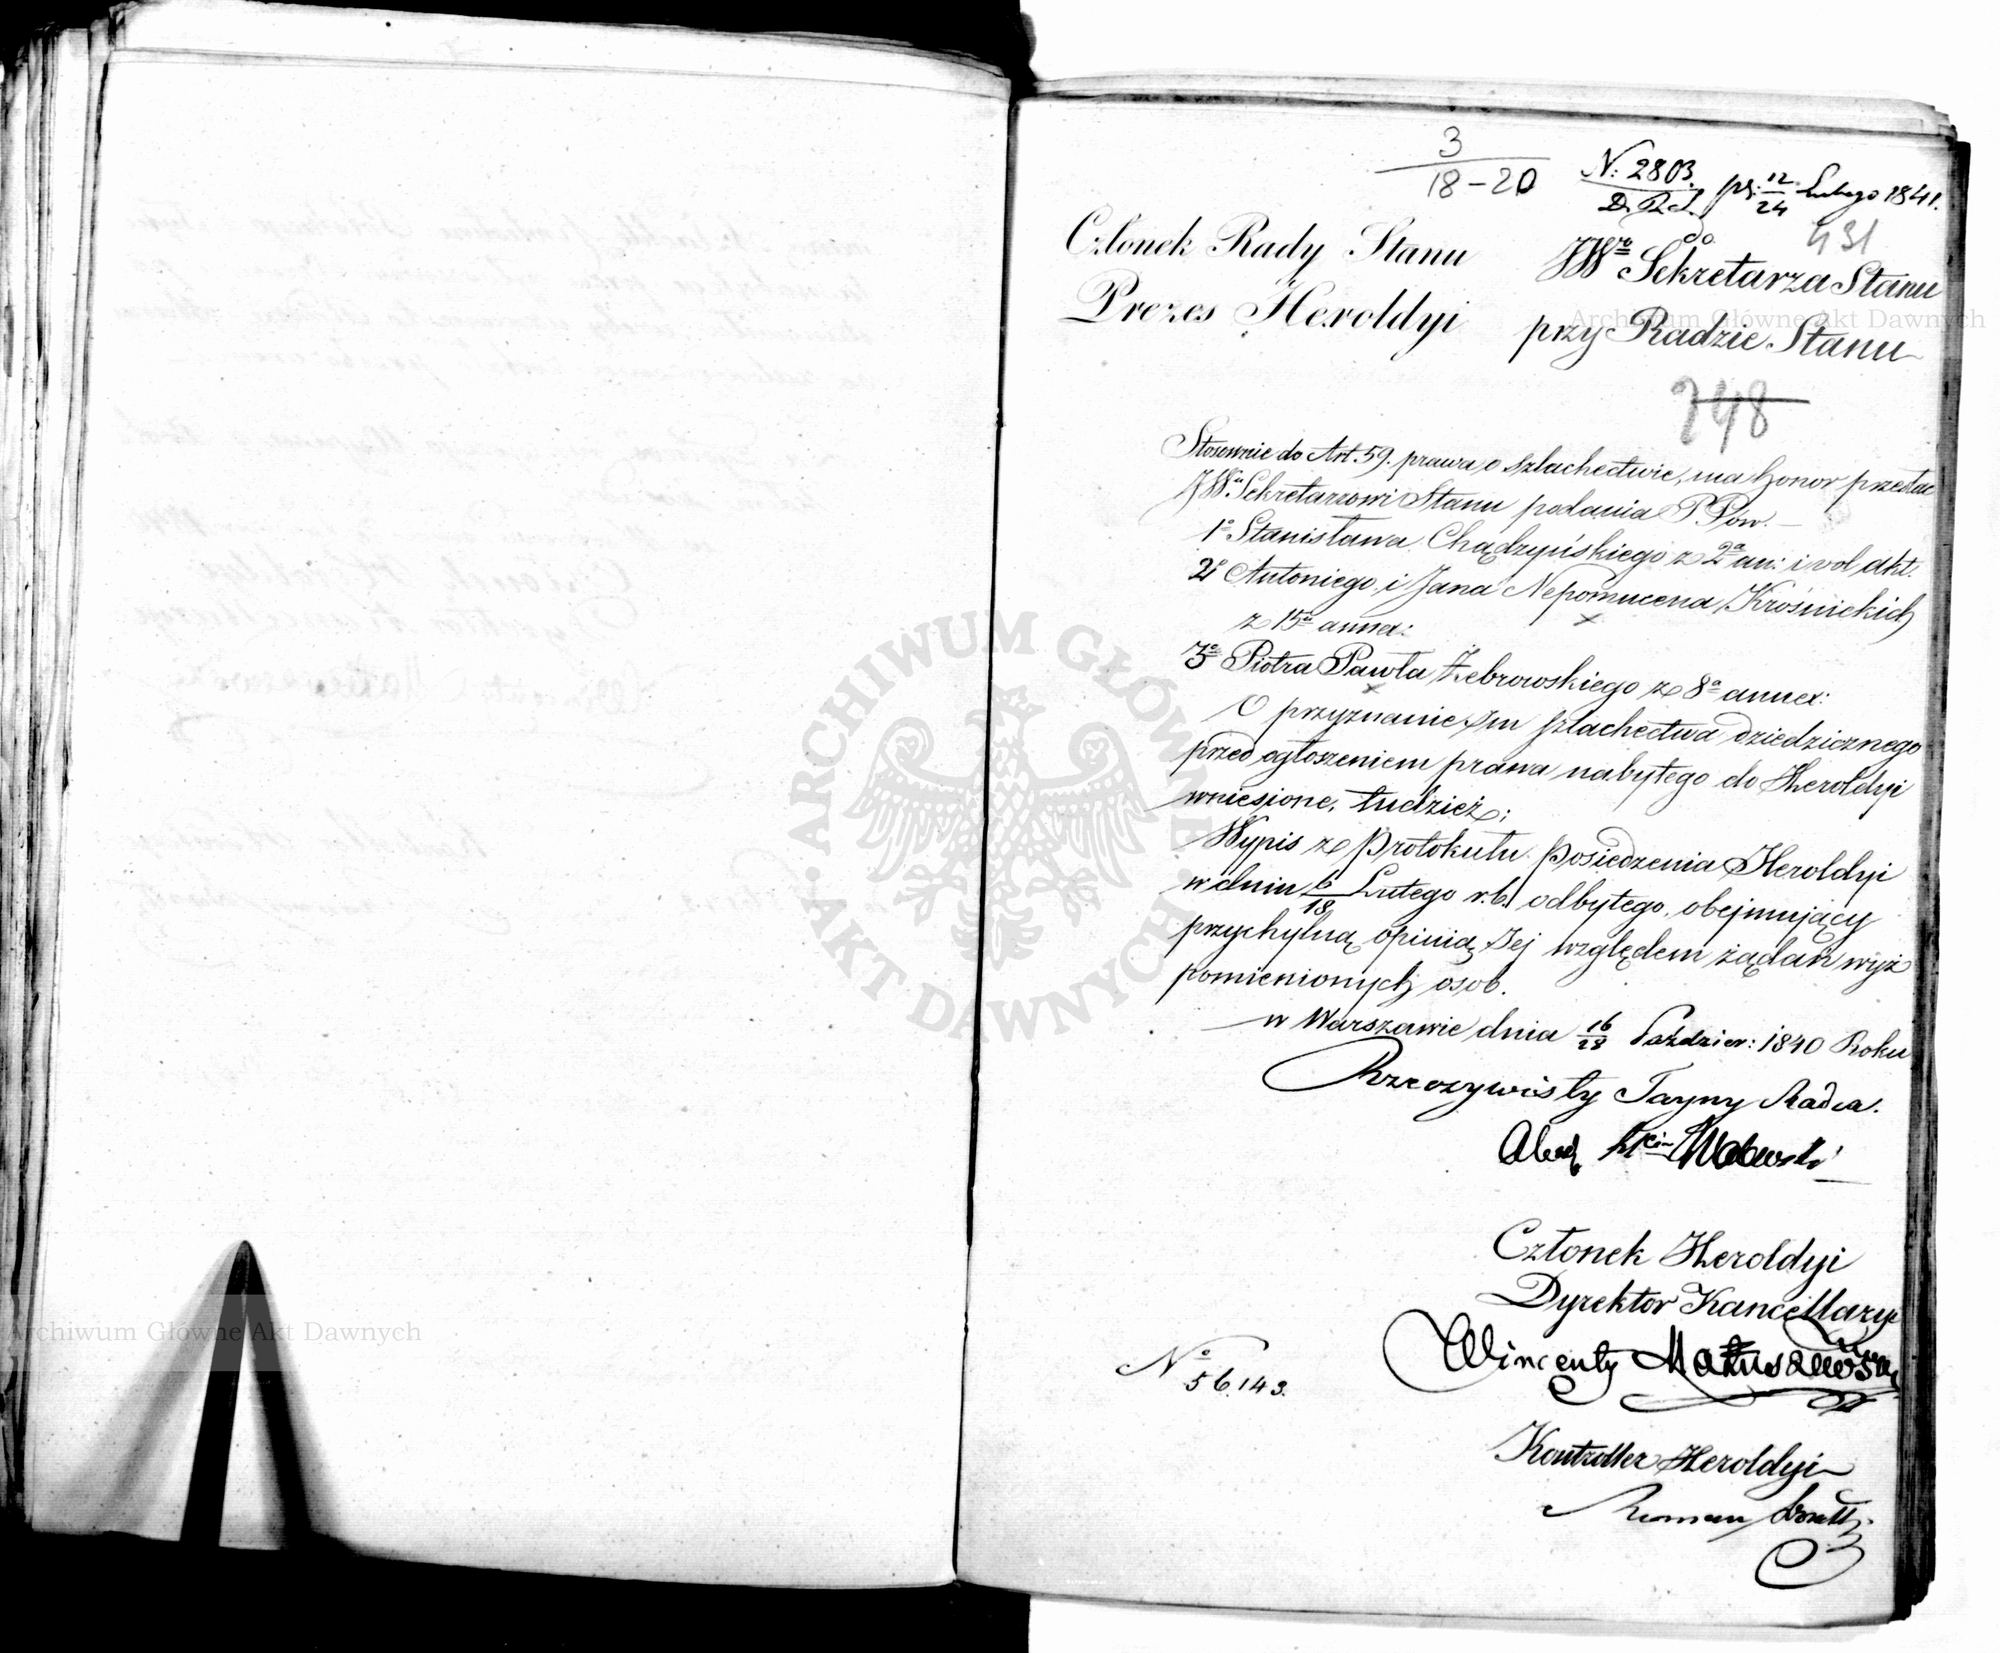 3
18-20
N: 2803.
D. R. S.
pr: 12/24 Lutego 1841.
431
Członek Rady Stanu
Prezes Heroldyi
do
JWo Sekretarza Stanu
przy Radzie Stanu
748
Stosownie do Art. 59. prawa o szlachectwie, ma honor przesłać
JWu Sekretarzowi Stanu podania PPów. —
1o Stanisława Chądzyńskiego z 2a an: i vol akt.
2o Antoniego i Jana Nepomucena Krośnickich
z 15a annex:
3o Piotra Pawła Żebrowskiego z 8a annex:
O przyznanie im szlachectwa dziedzicznego
przed ogłoszeniem prawa nabytego do Heroldyi
wniesione, tudzież;
Wypis z Protokułu Posiedzenia Heroldyi
w dniu 6/18 Lutego r. b. odbytego, obejmujący
przychylną opinią Jej względem żądań wyż
pomienionych osob.
w Warszawie dnia 16/28 Paździer: 1840 Roku
Rzeczywisty Tayny Radca.
Walewski
Członek Heroldyi
Dyrektor Kancellaryi
Wincenty Matuszewski
No 56.143.
Kontroller Heroldyi
Roman
ARCHIWUM GŁÓWNE AKT DAWNYCH
Archiwum Główne Akt Dawnych
Archiwum Główne Akt Dawnych